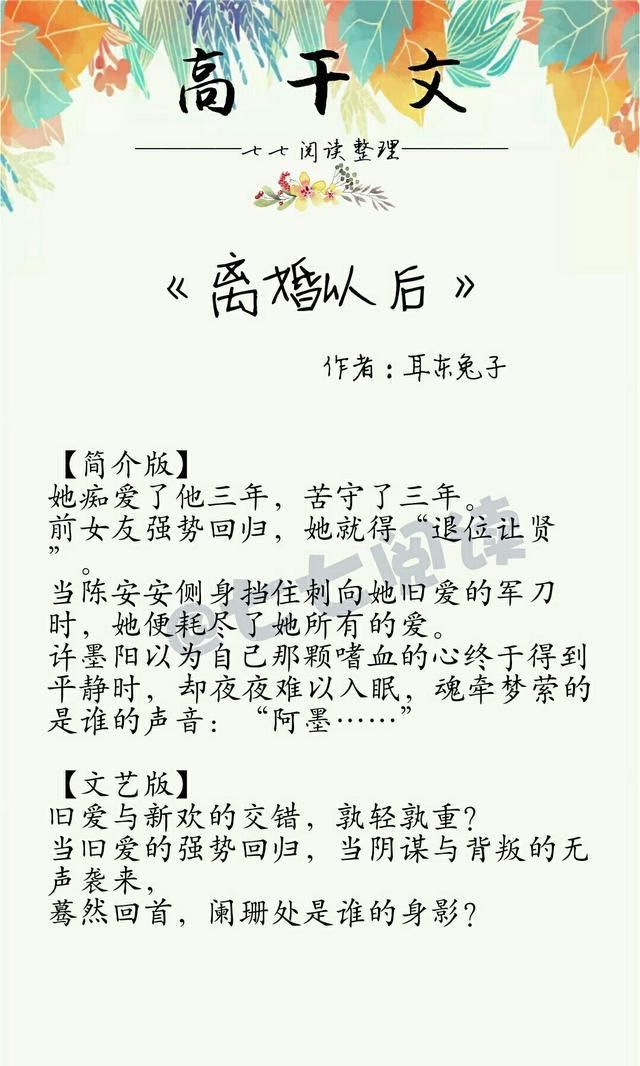 高干文
七七阅读整理
《离婚以后》
作者：耳东兔子
【简介版】
她痴爱了他三年，苦守了三年。
前女友强势回归，她就得“退位让贤
”。
当陈安安侧身挡住刺向她旧爱的军刀
时，她便耗尽了她所有的爱。
许墨阳以为自己那颗嗜血的心终于得到
平静时，却夜夜难以入眠，魂牵梦萦的
是谁的声音：“阿墨……”
【文艺版】
旧爱与新欢的交错，孰轻孰重？
当旧爱的强势回归，当阴谋与背叛的无
声袭来，
蓦然回首，阑珊处是谁的身影？
@七七阅读